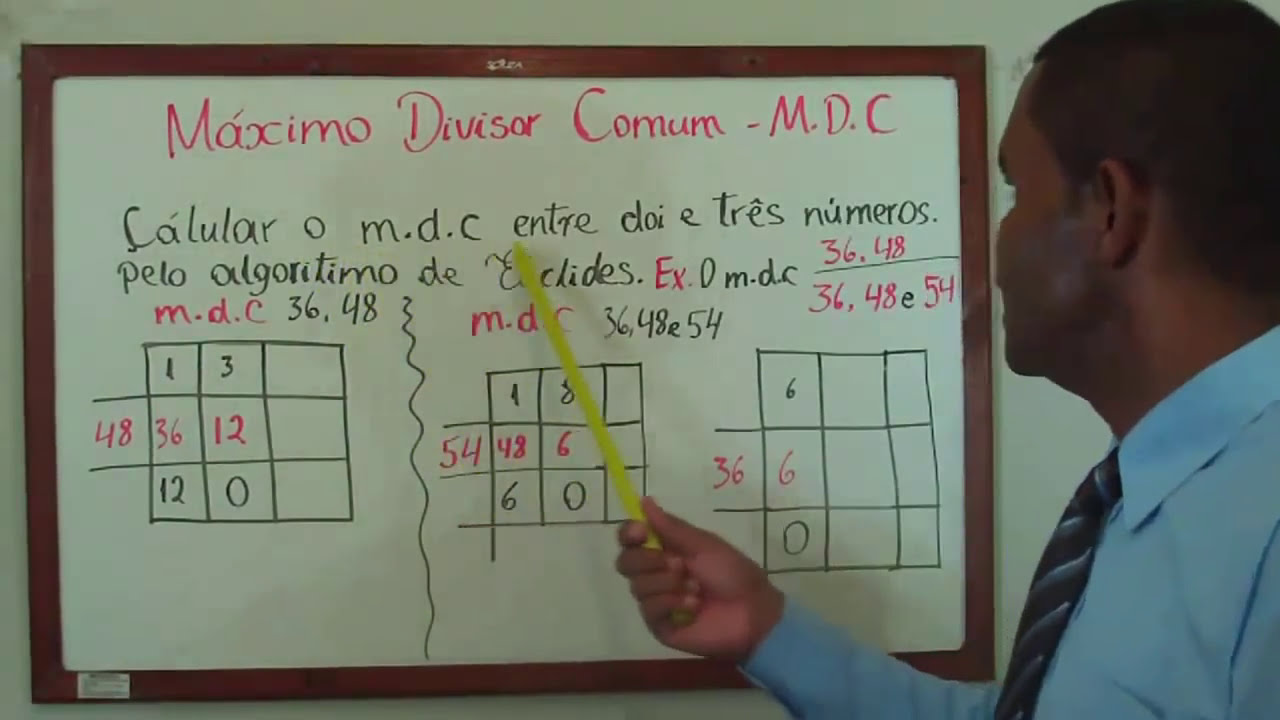 Máximo Divisor Comum - M.D.C
Çálular o m.d.c entre doi e três números.
pelo algoritimo de Euclides. Ex. O m.d.c 36,48
36, 48 e 54
m.d.c 36,48
m.d.c 36,48e54
1 3
48 36 12
12 0
1 8
54 48 6
6 0
6
36 6
0